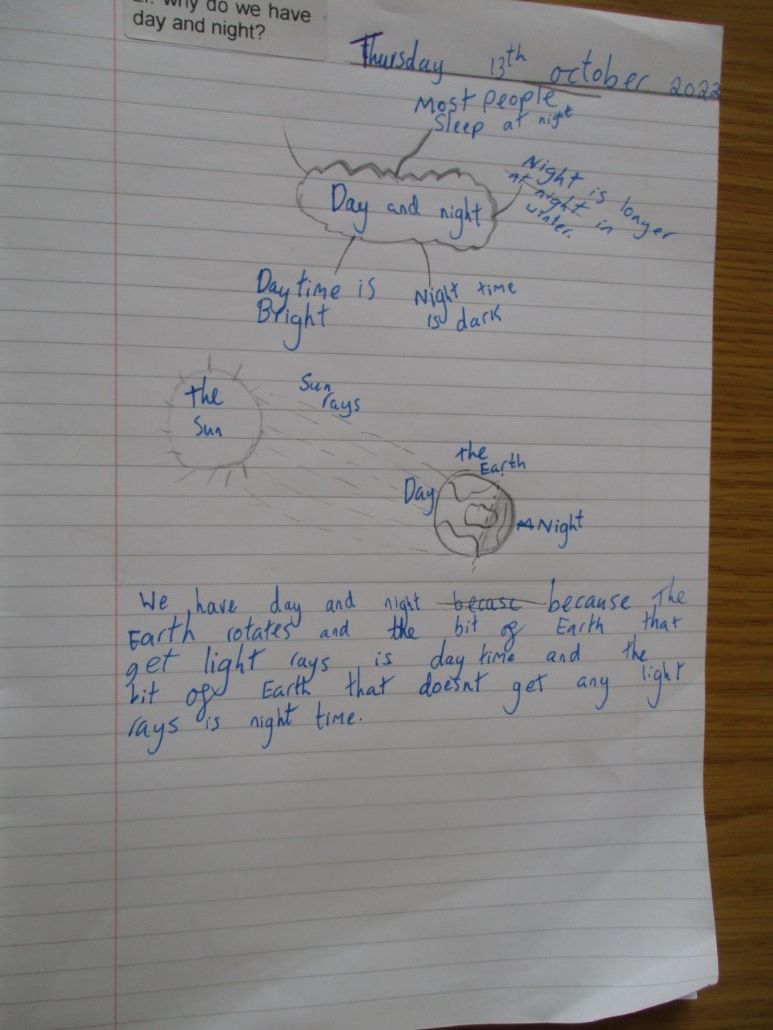 why do we have
day and night?
Thursday 13th october 2022
Most people
Sleep at night
Day and night
Night is longer
at night in
winter.
Daytime is
Bright
Night time
is dark
the
Sun
Sun
rays
the
Earth
Day
Night
We have day and night becasc because The
Earth rotates and the bit of Earth that
get light rays is day time and the
bit of Earth that doesnt get any light
rays is night time.